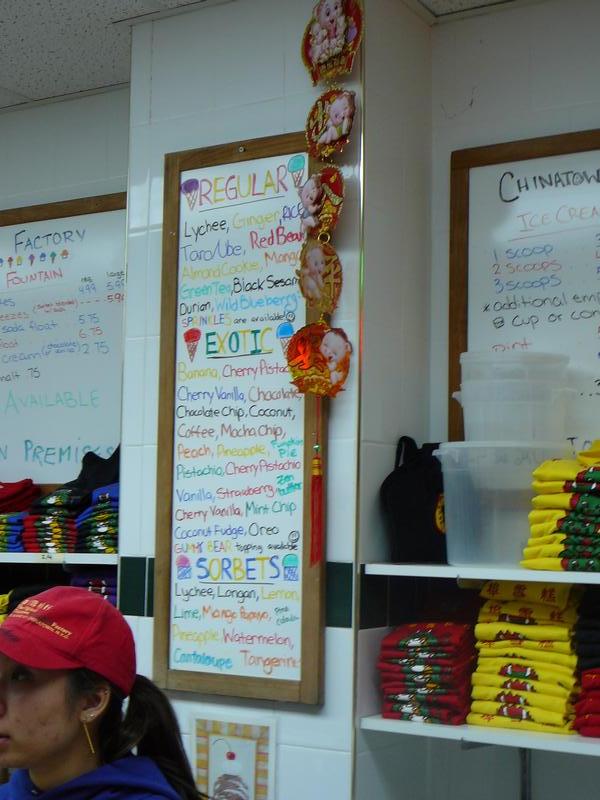 FACTORY
FOUNTAIN
4.99
soda float 5.75
6.75
cream 2.75
malt .75
AVAILABLE
N PREMISES
REGULAR
Lychee, Ginger, RICE
Taro/Ube, Red Bean
Almond Cookie, Mango
Green Tea, Black Sesame
Durian, Wild Blueberry
SPRINKLES are available
EXOTIC
Banana, Cherry Pistachio
Cherry Vanilla, Chocolate
Chocolate Chip, Coconut,
Coffee, Mocha Chip,
Peach, Pineapple, Pumpkin Pie
Pistachio, Cherry Pistachio
Vanilla, Strawberry, Zen Butter
Cherry Vanilla, Mint Chip
Coconut Fudge, Oreo
GUMMY BEAR topping available
SORBETS
Lychee, Longan, Lemon,
Lime, Mango Papaya,
Pineapple, Watermelon,
Cantaloupe Tangerine
CHINATOW
ICE CREA
1 SCOOP
2 SCOOPS
3 SCOOPS
*additional emp
@ cup or con
pint